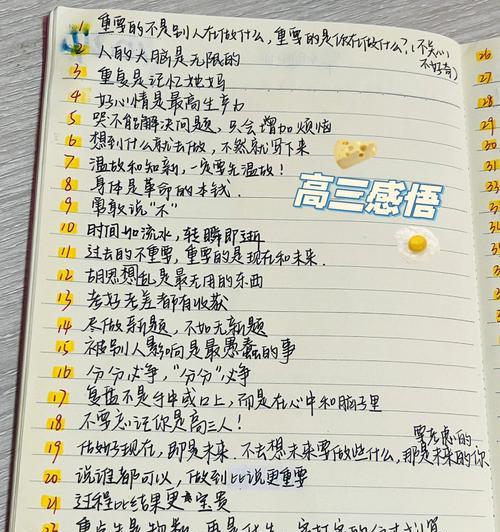 1 重要的不是别人在做什么，重要的是你在做什么？（不关心
不好奇）
2 人的大脑是无限的
3 重复是记忆他妈
4 好心情是最高生产力
5 哭不能解决问题，只会增加烦恼
6 想到什么就去做，不然就写下来
7 温故和知新，一定要先温故！
8 身体是革命的本钱.
9 勇敢说“不”
10 时间如流水，转瞬即逝
11 过去的不重要，重要的是现在和未来.
12 胡思想乱是最无用的东西
13 考好考差都有收获
14 尽做新题，不如无新题
15 被别人影响是最愚蠢的事
16 分分必争，“分分”必争
17 复盘不是手中或口上，而是在心中和脑子里
18 不要忘记你是高三人！
要考虑的.
19 做好现在，即是未来. 不去想未来要做些什么，那是未来的你
20 说谁都可以，做到比说更重要
21 过程比结果更宝贵
高三感悟
26
27
28
29